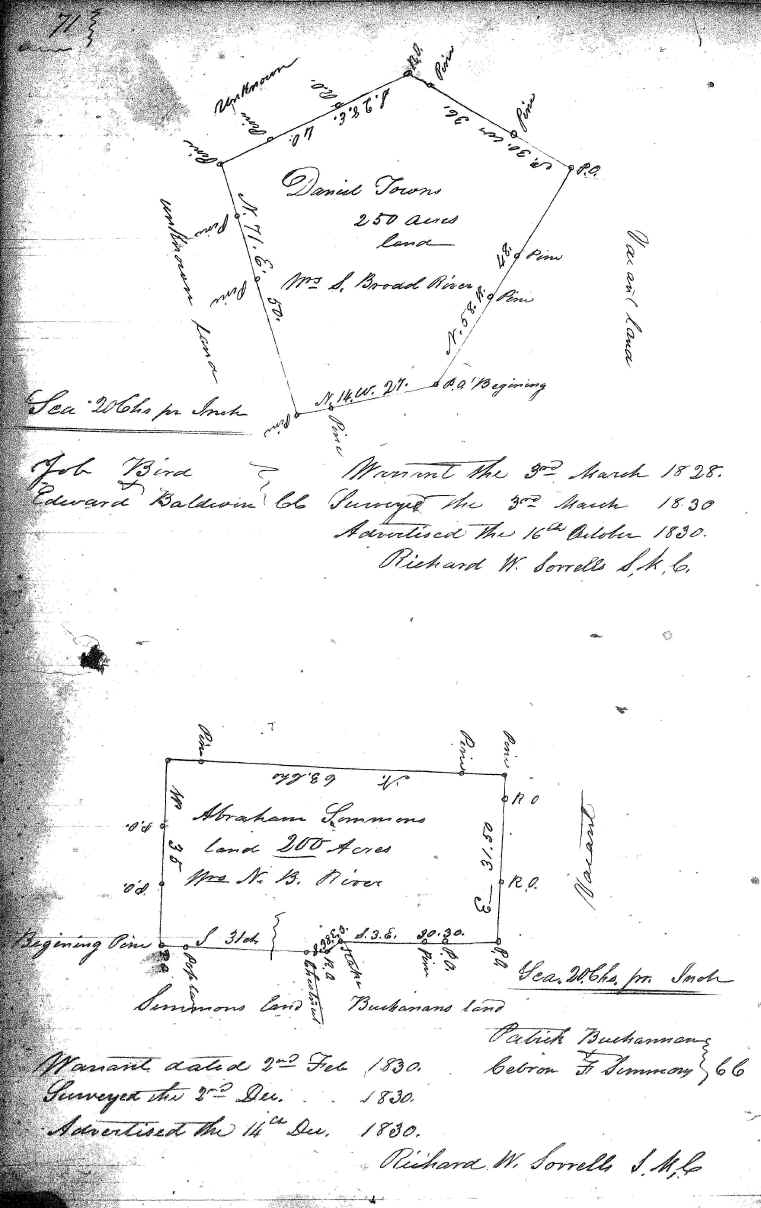 71
R.O.
Pine
Unknown
R.O.
S. 28. E.
40.
Pine
Pine
Pine
P.O.
Daniel Towns
250 acres
land
Wrs S. Broad River
N. 71. E. 50.
Pine
Pine
unknown land
48.
Pine
Pine
N. 58. W.
Vacant land
P.O. Begining
N. 14. W. 27.
Pine
Pine
Sca 20 Chs pr Inch
Job Bird
&
Edward Baldwin } CC
Warrant the 3rd March 1828.
Surveyed the 3rd March 1830
Advertised the 16th October 1830.
Richard W. Sorrells S. M. C.
Pine
Pine
Pine
N. 63. Chs
R O
R.O.
E 31.50
Vacant
W 35
P.O.
P.O.
Abraham Simmons
land 200 Acres
Wrs N. B. River
Begining Pine
P.O.
Poplar
S 31 ch
Chestnut
R.O
S. 3. E.
30.30.
Pine
P.O.
P.O
Simmons land
Buchanans land
Sca. 20. Chs. pr Inch
Patrick Buchannan
&
Cebron F Simmons } CC
Warrant dated 2nd Feb 1830.
Surveyed the 2nd Dec. 1830.
Advertised the 14th Dec. 1830.
Richard. W. Sorrells S. M. C